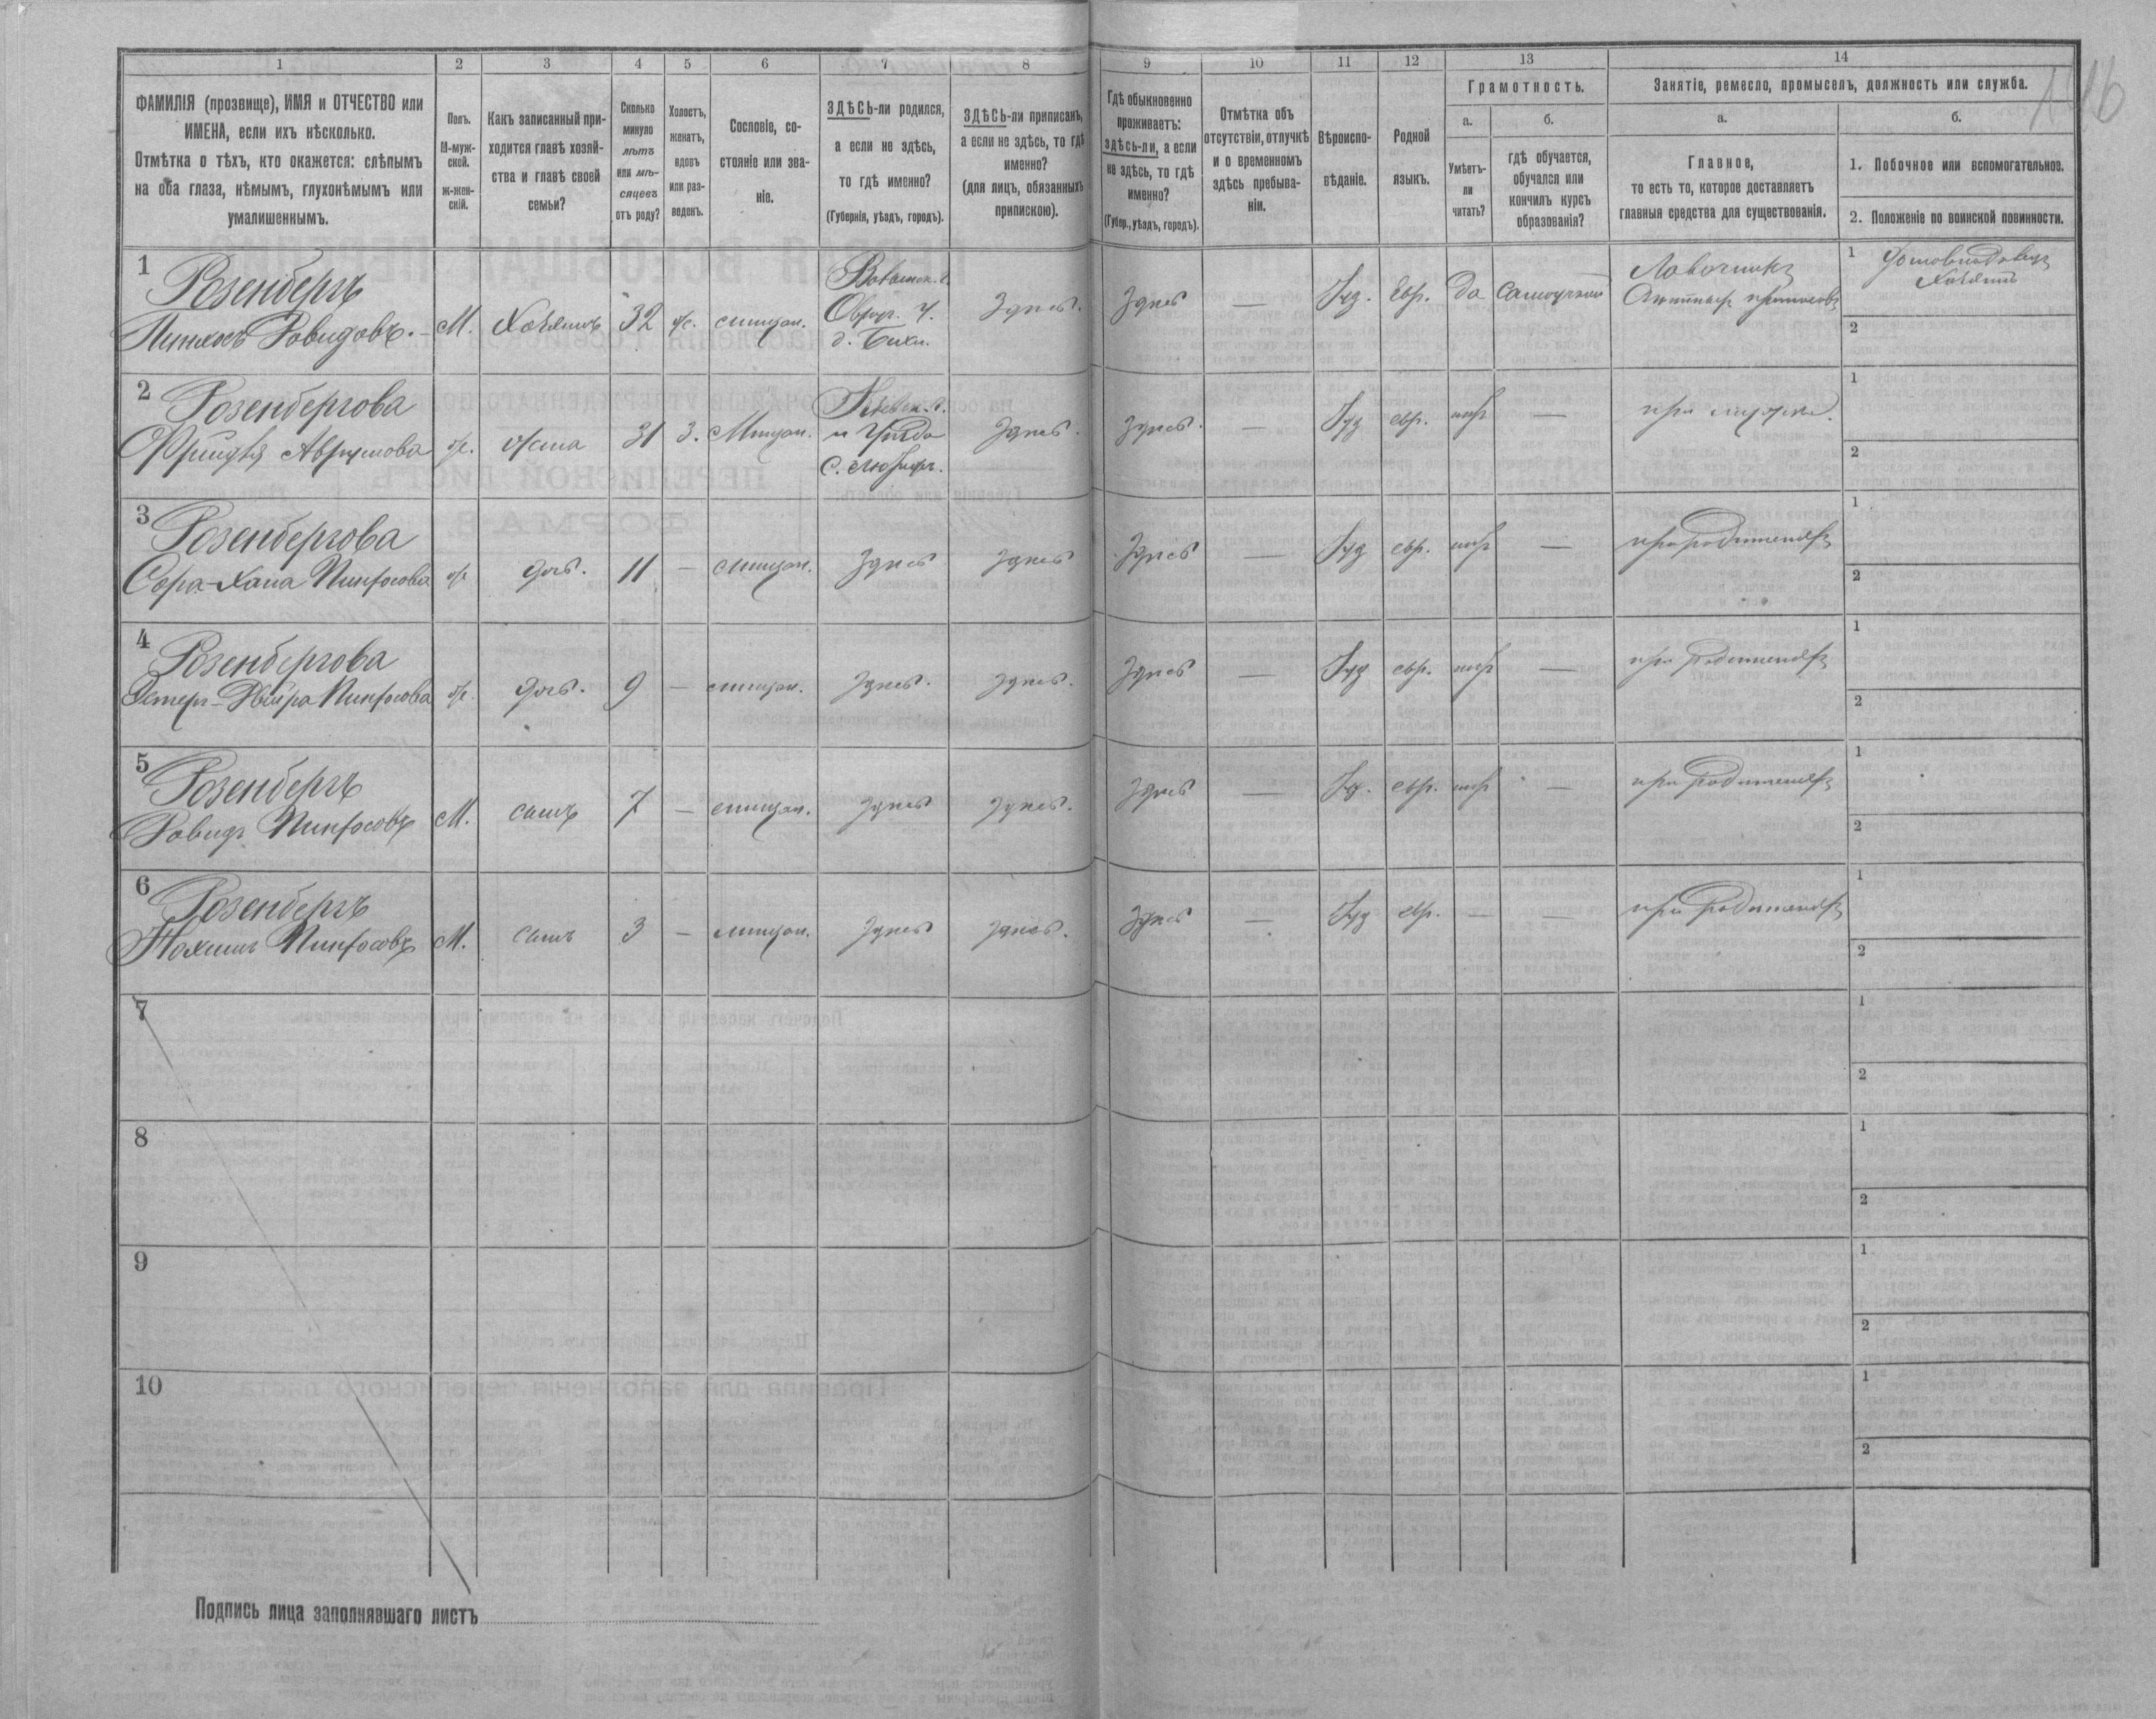 1 2 3 4 5 6 7 8 9 10 11 12 13 14
ФАМИЛІЯ (прозвище), ИМЯ и ОТЧЕСТВО или
ИМЕНА, если ихъ нѣсколько.
Отмѣтка о тѣхъ, кто окажется: слѣпымъ
на оба глаза, нѣмымъ, глухонѣмымъ или
умалишеннымъ.
Полъ.
М-муж-
ской.
ж-жен-
скій.
Какъ записанный при-
ходится главѣ хозяй-
ства и главѣ своей
семьи?
Сколько
минуло
лѣтъ
или мѣ-
сяцевъ
отъ роду?
Холостъ,
женатъ,
вдовъ
или раз-
веденъ.
Сословіе, со-
стояніе или зва-
ніе.
ЗДѢСЬ-ли родился,
а если не здѣсь,
то гдѣ именно?
(Губернія, уѣздъ, городъ).
ЗДѢСЬ-ли приписанъ,
а если не здѣсь, то гдѣ
именно?
(для лицъ, обязанныхъ
припискою).
Гдѣ обыкновенно
проживаетъ:
здѣсь-ли, а если
не здѣсь, то гдѣ
именно?
(Губер., уѣздъ, городъ).
Отмѣтка объ
отсутствіи, отлучкѣ
и о временномъ
здѣсь пребыва-
ніи.
Вѣроиспо-
вѣданіе.
Родной
языкъ.
Грамотность.
а.
Умѣетъ-
ли
читать?
б.
гдѣ обучается,
обучался или
кончилъ курсъ
образованія?
Занятіе, ремесло, промыселъ, должность или служба.
а.
Главное,
то есть то, которое доставляетъ
главныя средства для существованія.
б.
1. Побочное или вспомогательное.
2. Положеніе по воинской повинности.
1 Розенбергъ
Пинхосъ Довидовъ. М. Хозяинъ 32 ж. мѣщан. Волынск. г.
Овруч. у.
д. Здесь. Здесь — Іуд. Евр. да Лавочникъ
1
2
2 Розенбергова
Фрейда Аврумова ж. жена 31 З. Мѣщан. Кіевск. г.
и уѣзда
с. Здесь. Здесь. — Іуд евр. нѣт — при мужѣ.
1
2
3 Розенбергова
Сура-Хана Пинхосова ж дочь. 11 — мѣщан. Здесь Здесь Здесь — Іуд евр. нѣт — при родителяхъ
1
2
4 Розенбергова
Естеръ- Пинхосова ж. дочь. 9 — мѣщан. Здесь. Здесь. Здесь — Іуд евр. нѣт — при родителяхъ
1
2
5 Розенбергъ
Довидъ Пинхосовъ М. сынъ 7 — мѣщан. Здесь Здесь. Здесь — Іуд. евр. нѣт — при родителяхъ
1
2
6 Розенбергъ
Нахманъ Пинхосовъ М. сынъ 3 — мѣщан. Здесь Здесь. Здесь — Іуд евр. — — при родителяхъ
1
2
7
1
2
8
1
2
9
1
2
10
1
2
Подпись лица заполнявшаго листъ